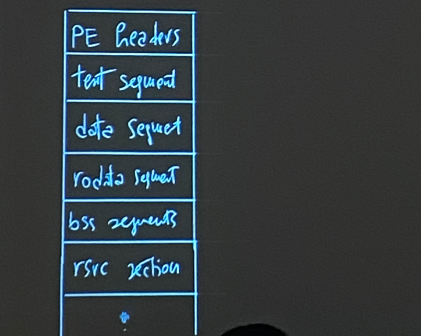 PE headers
text segment
data segmet
rodata segment
bss segments
rsrc section